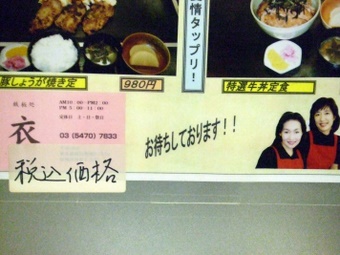 情タップリ！
豚しょうが焼き定
980円
特選牛丼定食
AM10：00-PM2：00
PM 5：00-11：00
定休日 土・日・祝日
衣
03 (5470) 7833
お待ちしております！！
税込価格